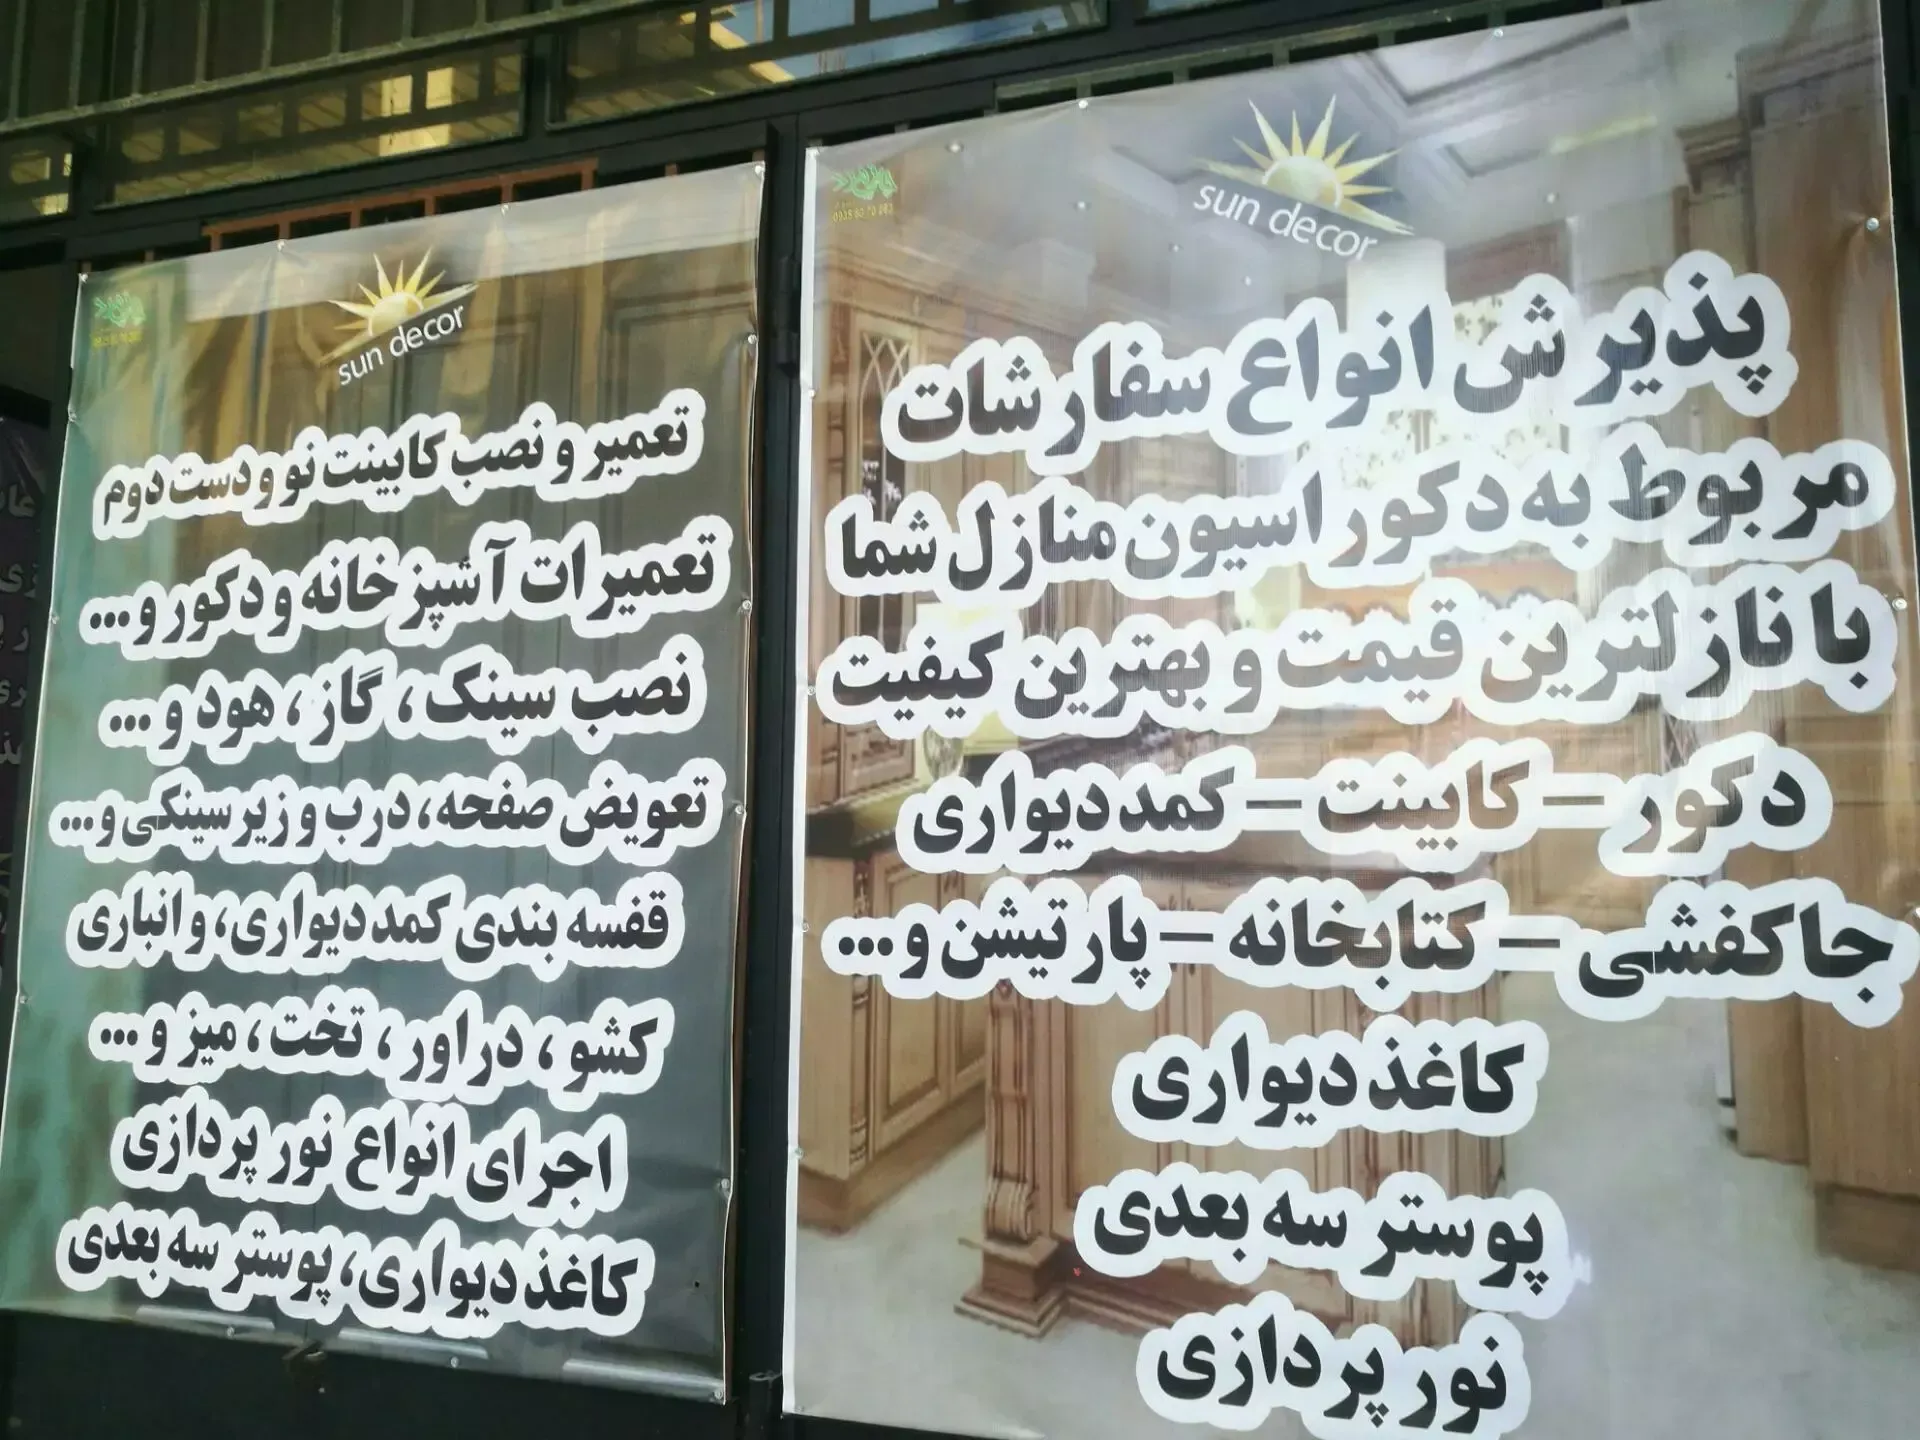 sun decor
پذیرش انواع سفارشات
مربوط به دکوراسیون منازل شما
با نازلترین قیمت و بهترین کیفیت
دکور – کابینت – کمد دیواری
جاکفشی – کتابخانه – پارتیشن و...
کاغذ دیواری
پوستر سه بعدی
نور پردازی
sun decor
تعمیر و نصب کابینت نو و دست دوم
تعمیرات آشپزخانه و دکور و...
نصب سینک، گاز، هود و...
تعویض صفحه، درب و زیر سینکی و...
قفسه بندی کمد دیواری، و انباری
کشو، دراور، تخت، میز و...
اجرای انواع نور پردازی
کاغذ دیواری، پوستر سه بعدی